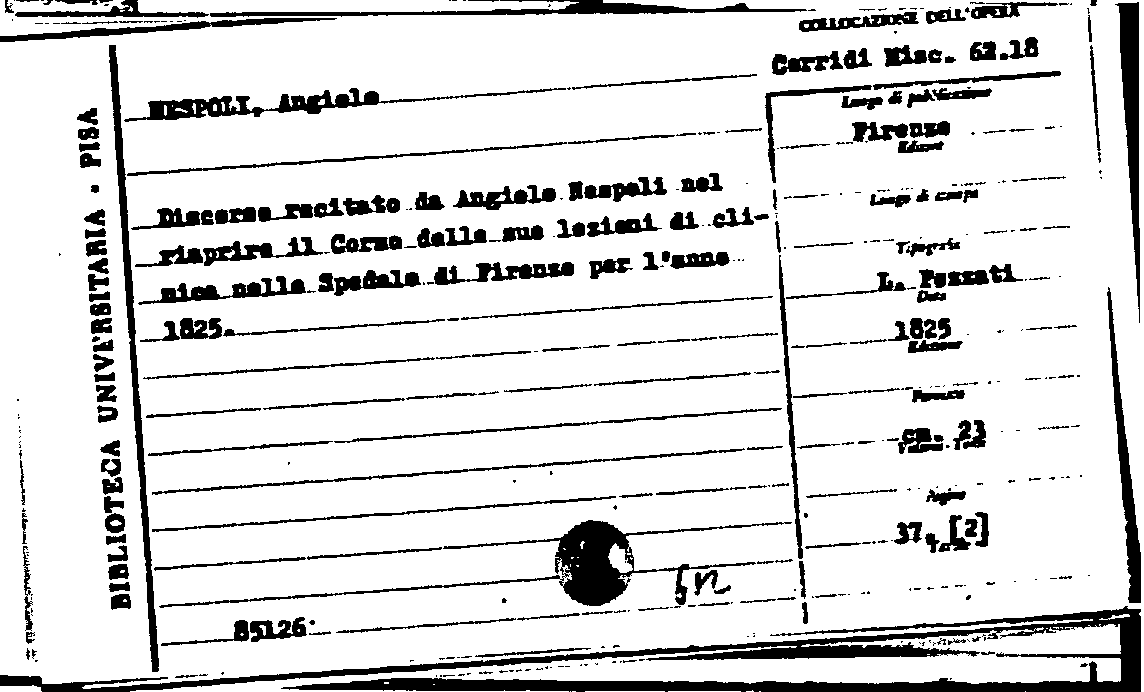 BIBLIOTECA UNIVERSITARIA - PISA
COLLOCAZIONE DELL'OPERA
Corridi Misc. 62.18
NESPOLI, Angiolo
Discorso recitato da Angiolo Nespoli nel
riaprire il Corso delle sue lezioni di cli-
nica nello Spedale di Firenze per l'anno
1825.
85126
Luogo di pubblicazione
Firenze
Editore
Luogo di stampa
Tipografia
L. Pezzati
Data
1825
Edizione
Formato
cm. 23
Volumi - Tomi
Pagine
37, [2]
Tavole